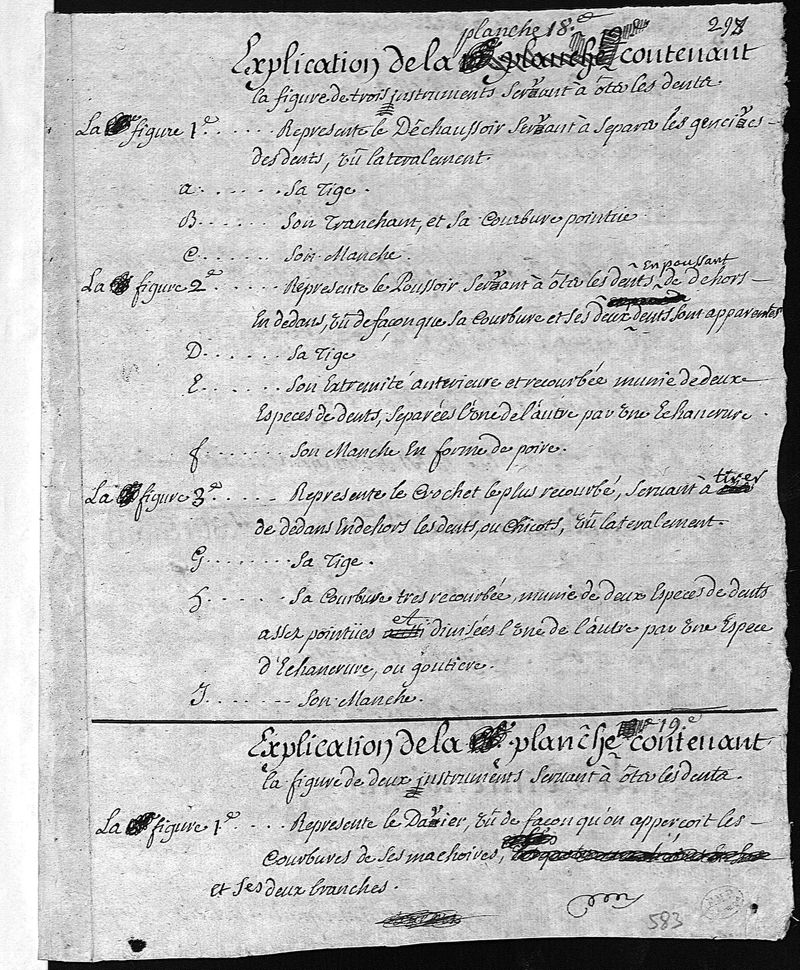 297
planche 18.e
Explication de la planche contenant
la figure de trois instruments servant à ôter les dents.
La figure 1.e ...... Represente le Déchaussoir servant à separer les gencives
des dents, vû lateralement.
a ...... Sa Tige.
B ...... Son Tranchant, et sa Courbure pointue
C ...... Son Manche.
En poussant
La figure 2.e ...... Represente le Poussoir servant à ôter les dents de dehors
En dedans, vû de façon que sa Courbure et ses deux dents sont apparentes
D ...... Sa Tige
E ...... Son Extremité anterieure et recourbée munie de deux
Especes de dents, separées l'une de l'autre par une Echancrure.
f ...... Son Manche En forme de poire.
La figure 3.e ...... Represente le Crochet le plus recourbé, servant à tirer
de dedans En dehors les dents, ou Chicots, vû lateralement.
G ...... Sa Tige.
h ...... Sa Courbure tres recourbée, munie de deux Especes de dents
assez pointües et divisées l'une de l'autre par une Espece
d'Echancrure, ou goutiere.
J ...... Son Manche.
19.e
Explication de la planche contenant
la figure de deux instruments servant à ôter les dents.
La figure 1.e ...... Represente le Davier, vû de façon qu'on apperçoit les
Courbures de ses machoires,
et ses deux branches.
583